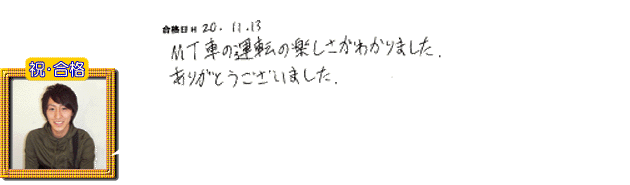 合格日 H 20.11.13
MT車の運転の楽しさがわかりました.
ありがとうございました.
祝・合格